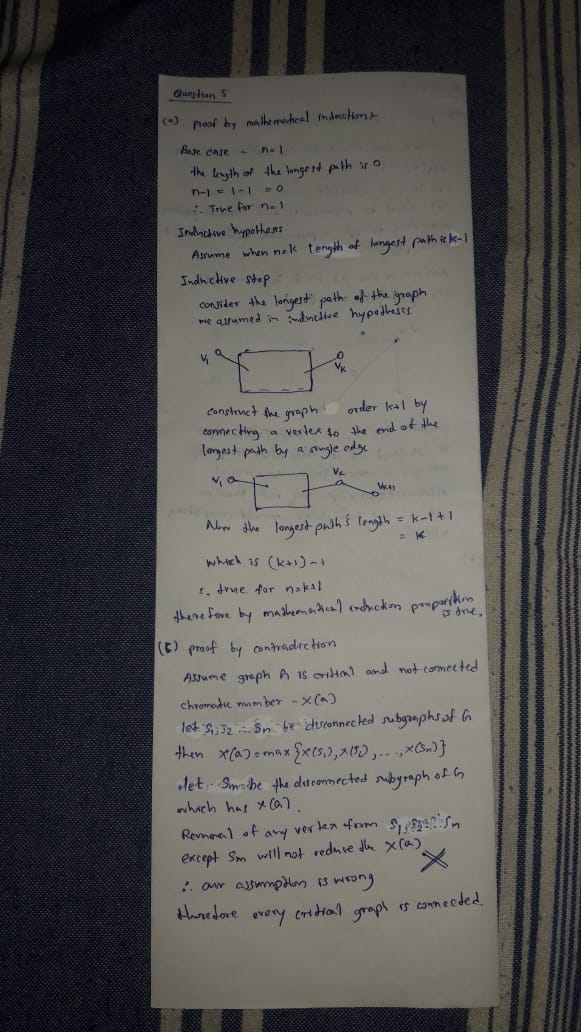 Question 5
(a) proof by mathematical induction :-
Base case - n=1
the length of the longest path is 0
n-1 = 1-1 = 0
∴ True for n=1
Inductive hypothesis
Assume when n=k length of longest path is k-1
Inductive step
consider the longest path of the graph
we assumed in inductive hypothesis
V1
Vk
construct the graph order k+1 by
connecting a vertex to the end of the
longest path by a single edge
V1
Vk
Vk+1
Now the longest path's length = k-1+1
= k
which is (k+1)-1
∴ true for n=k+1
therefore by mathematical induction proposition
is true.
proof by contradiction
Assume graph G is critical and not connected
chromatic number - X(G)
let S1, S2 ... Sn be disconnected subgraphs of G
then X(G) = max {X(S1), X(S2), ..., X(Sn)}
let Sm be the disconnected subgraph of G
which has X(G).
Removal of any vertex from S1, S2 Sn
except Sm will not reduce the X(G)
∴ our assumption is wrong
therefore every critical graph is connected.